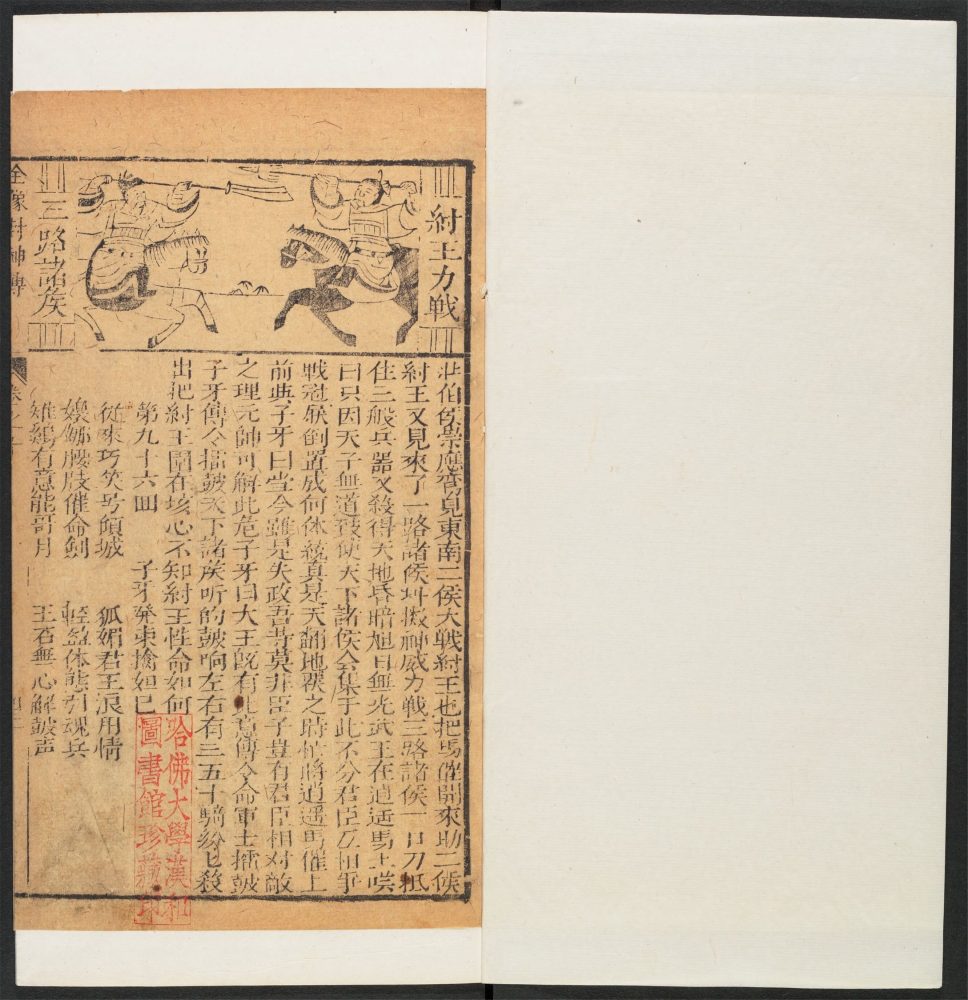 紂王力戰
三路諸侯
全像封神傳
北伯侯崇應鸞見東南二侯大戰紂王也把馬催開來助二侯
紂王又見來了一路諸侯抖擻神威力戰三路諸侯一口刀抵
住三般兵器又殺得天地昏暗旭日無光武王在逍遥馬上嘆
曰只因天子無道致使天下諸侯会集于此不分君臣互相爭
戰冠履倒置成何体統真是天翻地覆之時忙將逍遥馬催上
前與子牙曰當今雖是失政吾等莫非臣子豈有君臣相对敵
之理元帥可解此危子牙曰大王旣有此意傳令命軍士擂皷
子牙傳令擂皷天下諸侯听的皷响左右有三五十騎紛匕殺
出把紂王圍在垓心不知紂王性命如何
第九十六回　子牙發柬擒妲己
從來巧笑号傾城　狐媚君王浪用情
嬝娜腰肢催命劍　輕盈体態引魂兵
雉鷄有意能哥月　玉石無心解皷声
哈佛大學漢和
圖書館珍藏印